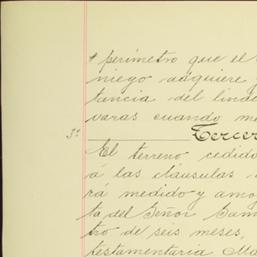 perímetro que el
niego adquiere
tancia del linde
varas cuando me
3ª Tercer
El terreno cedido
á las cláusulas
rá medido y amo
ta del Señor Cam
tro de seis meses,
testamentaria Ma